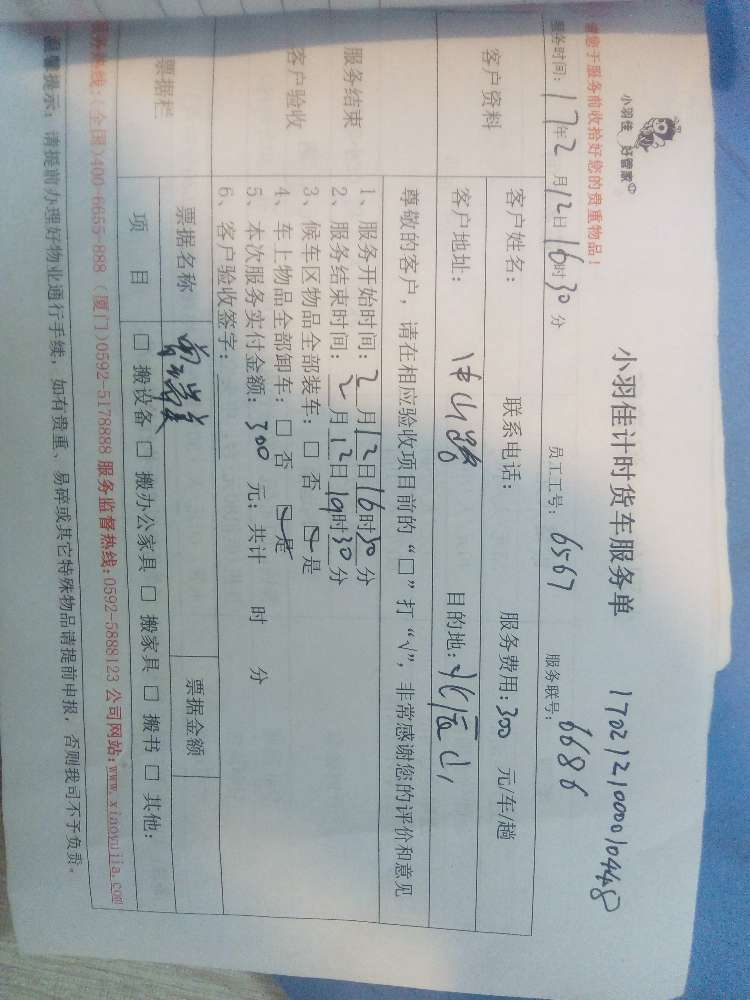 小羽佳 好管家
小羽佳计时货车服务单
170212100001044
您于服务前收拾好您的贵重物品！
服务时间：17年2月12日16时30分 员工工号：6567 服务联号：6686
客户资料
客户姓名： 联系电话： 服务费用：300 元/车/趟
客户地址： 山路 目的地：
服务结束
客户验收
尊敬的客户，请在相应验收项目前的“口”打“√”，非常感谢您的评价和意见
1、服务开始时间：2月12日16时30分
2、服务结束时间：2月12日19时30分
3、候车区物品全部装车：□ 否 ☑ 是
4、车上物品全部卸车：□ 否 ☑ 是
5、本次服务实付金额：300 元；共计 时 分
6、客户验收签字：
票据栏
票据名称 票据金额
项 目 □ 搬设备 □ 搬办公家具 □ 搬家具 □ 搬书 □ 其他：
服务热线：(全国)400-6655-888 (厦门)0592-5178888 服务监督热线：0592-5888123 公司网站：www.xiaoyujia.com
温馨提示：请提前办理好物业通行手续，如有贵重、易碎或其它特殊物品请提前申报，否则我司不予负责。